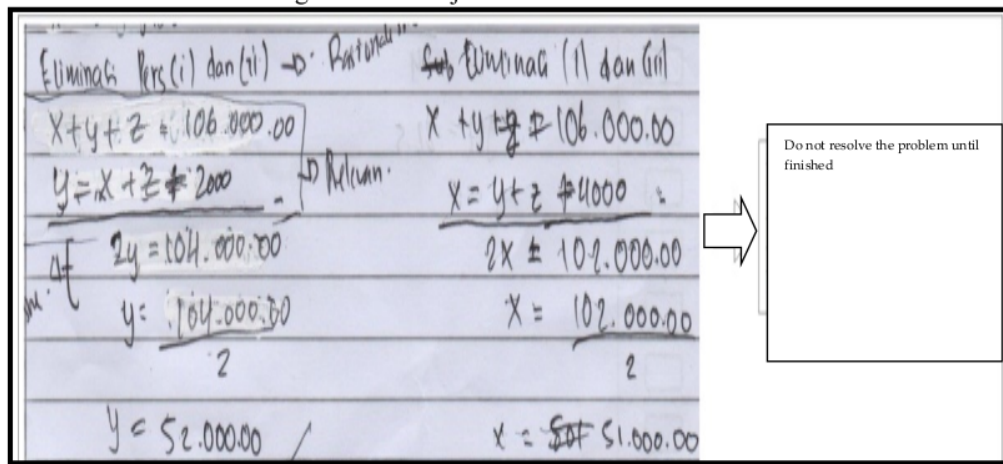 Eliminasi Pers (i) dan (ii)
x + y + z = 106.000.00
y = x + z 2000
Relevan.
2y = 104.000.00
y = 104.000.00
2
y = 52.000.00
Eliminasi (i) dan
x + y + z = 106.000.00
x = y + z 4000
2x = 102.000.00
x = 102.000.00
2
x = 51.000.00
Do not resolve the problem until
finished